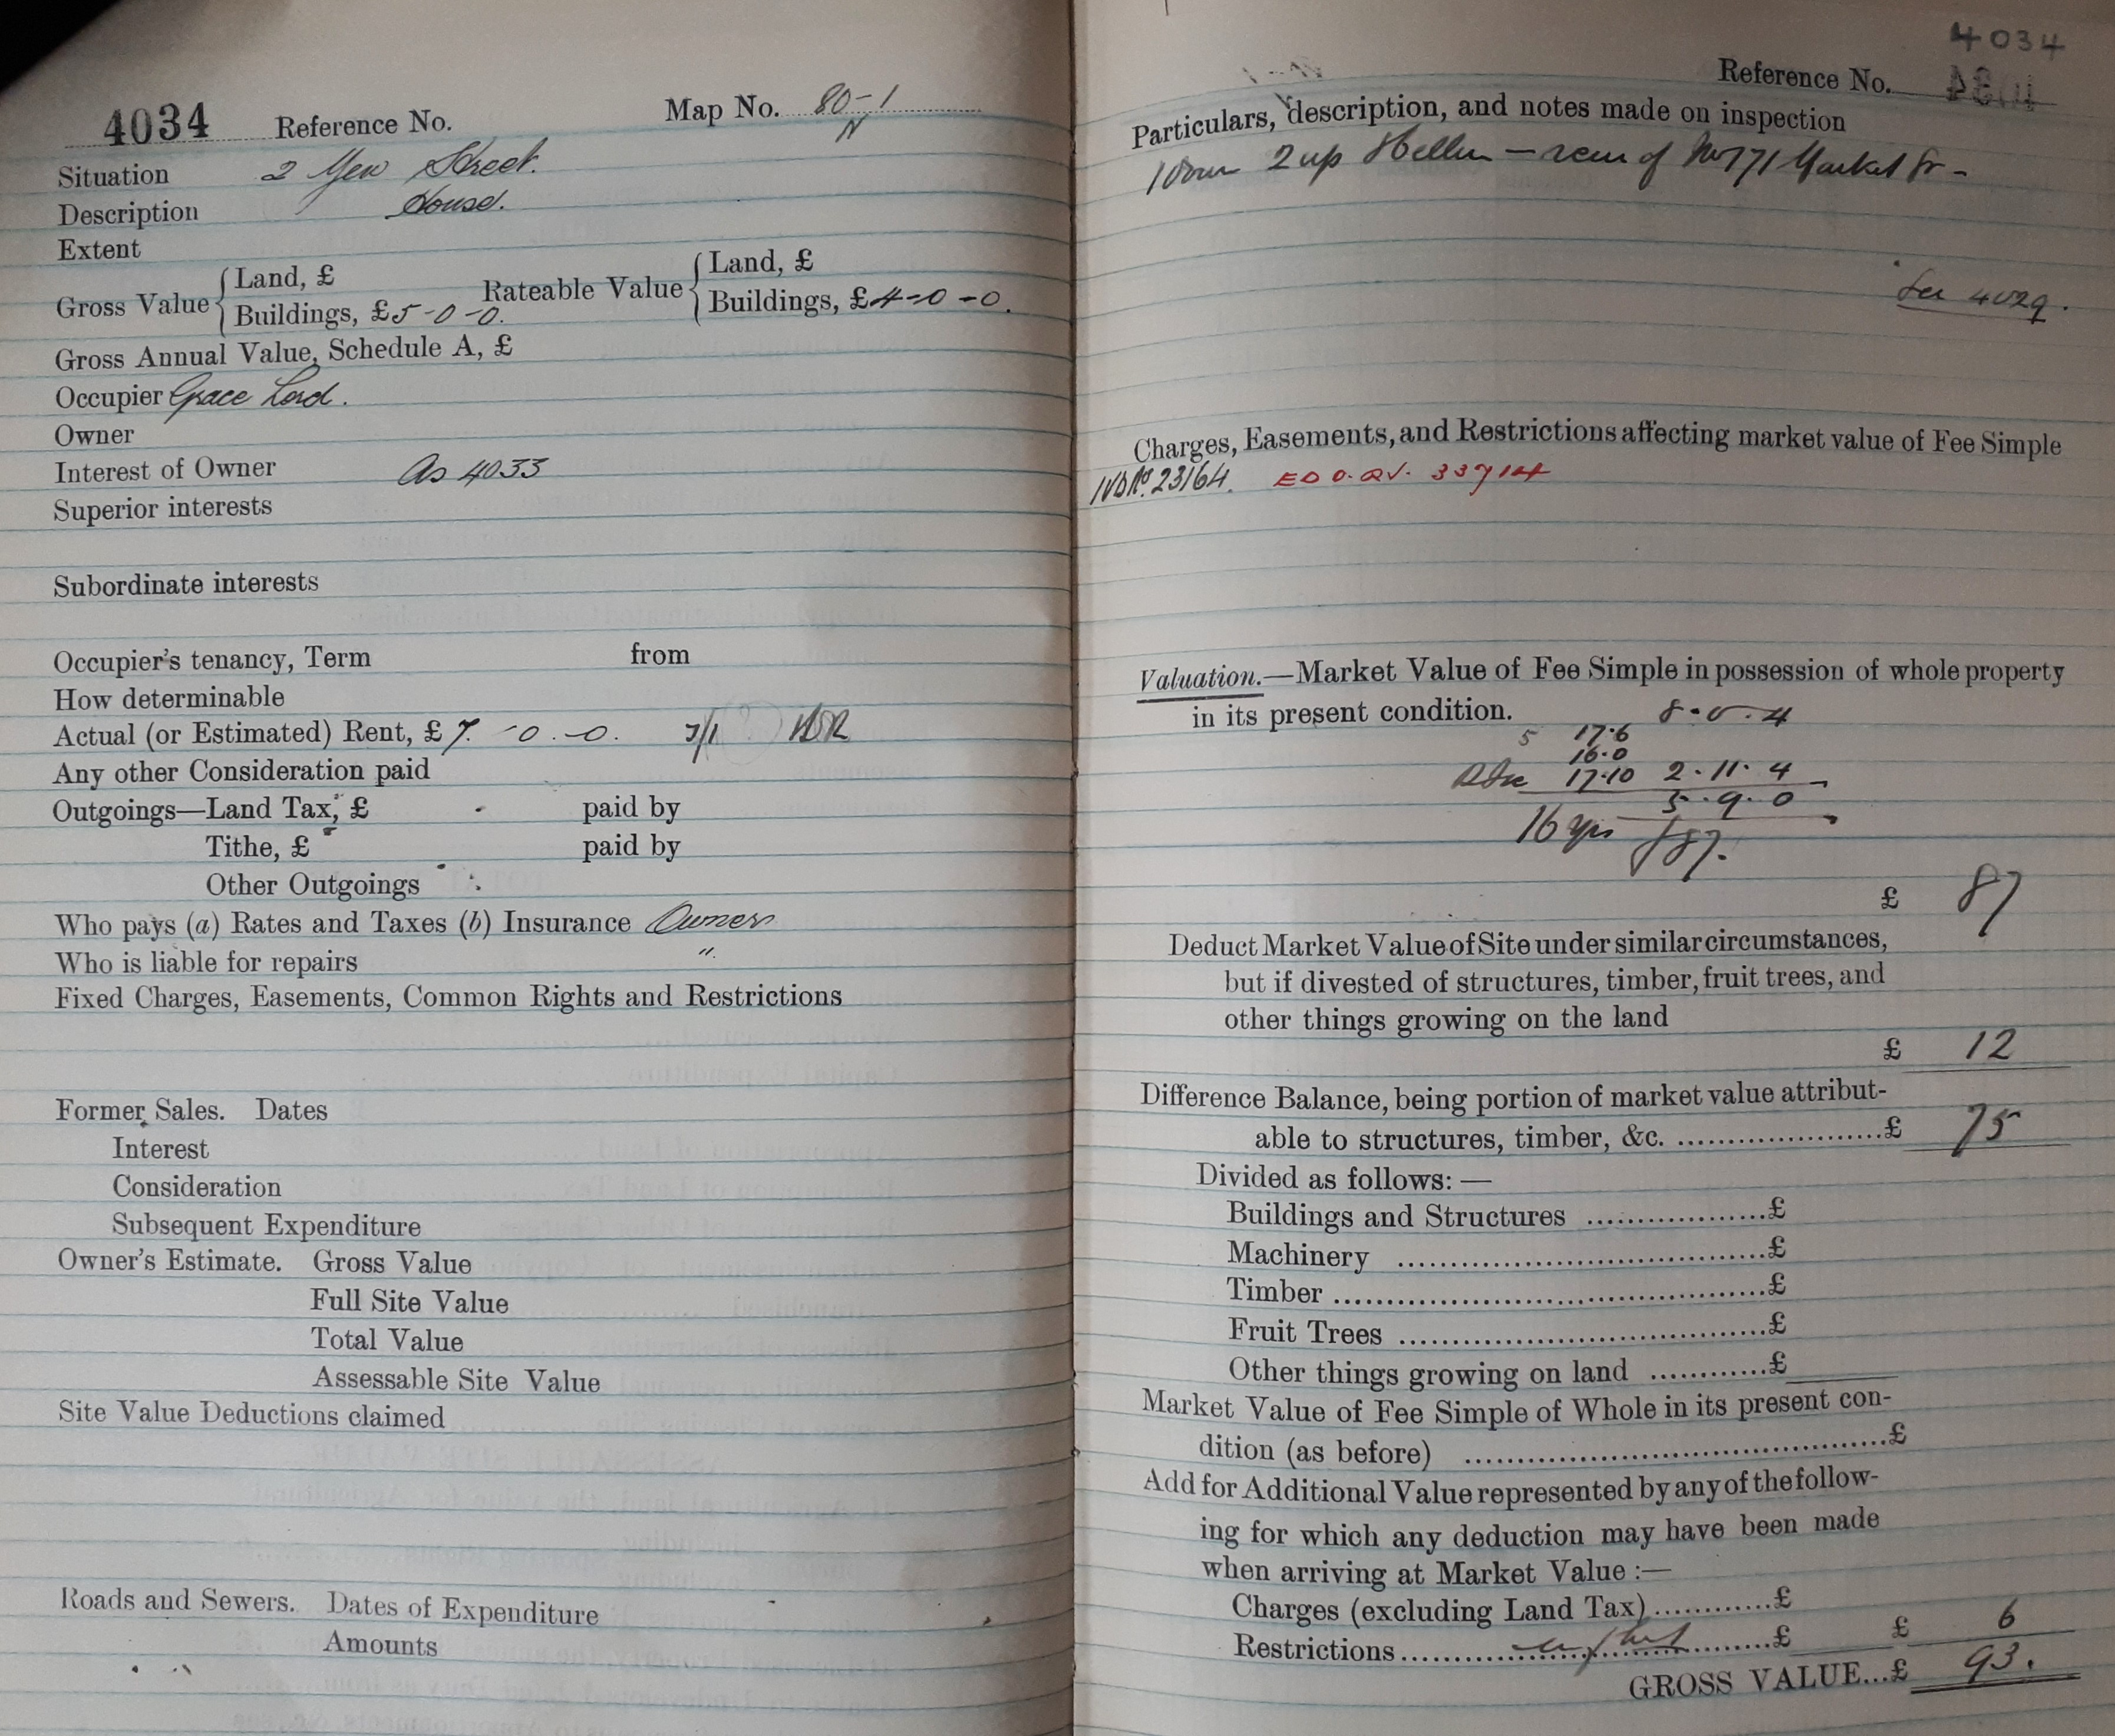 4034 Reference No. Map No. 80-1
N
Situation 2 Yew Street.
Description House.
Extent
Gross Value { Land, £
Buildings, £5-0-0. Rateable Value { Land, £
Buildings, £4-0-0.
Gross Annual Value, Schedule A, £
Occupier Grace Lord.
Owner
Interest of Owner As 4033
Superior interests
Subordinate interests
Occupier's tenancy, Term from
How determinable
Actual (or Estimated) Rent, £ 7.-0.-0.
Any other Consideration paid
Outgoings—Land Tax, £ paid by
Tithe, £ paid by
Other Outgoings
Who pays (a) Rates and Taxes (b) Insurance Owner
Who is liable for repairs "
Fixed Charges, Easements, Common Rights and Restrictions
Former Sales. Dates
Interest
Consideration
Subsequent Expenditure
Owner's Estimate. Gross Value
Full Site Value
Total Value
Assessable Site Value
Site Value Deductions claimed
Roads and Sewers. Dates of Expenditure
Amounts
4034
Reference No.
Particulars, description, and notes made on inspection
2 up rear of 171 Market St -
See 4029.
Charges, Easements, and Restrictions affecting market value of Fee Simple
23164.
Valuation.—Market Value of Fee Simple in possession of whole property
in its present condition. 8.0.4
5 17.6
16.0
17.10 2.11.4
5.9.0
16 yrs £87.
£ 87
Deduct Market Value of Site under similar circumstances,
but if divested of structures, timber, fruit trees, and
other things growing on the land
£ 12
Difference Balance, being portion of market value attribut-
able to structures, timber, &c. ......................£ 75
Divided as follows:—
Buildings and Structures ...................£
Machinery ......................................£
Timber ............................................£
Fruit Trees .....................................£
Other things growing on land ............£
Market Value of Fee Simple of Whole in its present con-
dition (as before) ...........................................£
Add for Additional Value represented by any of the follow-
ing for which any deduction may have been made
when arriving at Market Value :—
Charges (excluding Land Tax)............£
Restrictions......................................£ £ 6
GROSS VALUE...£ 93.